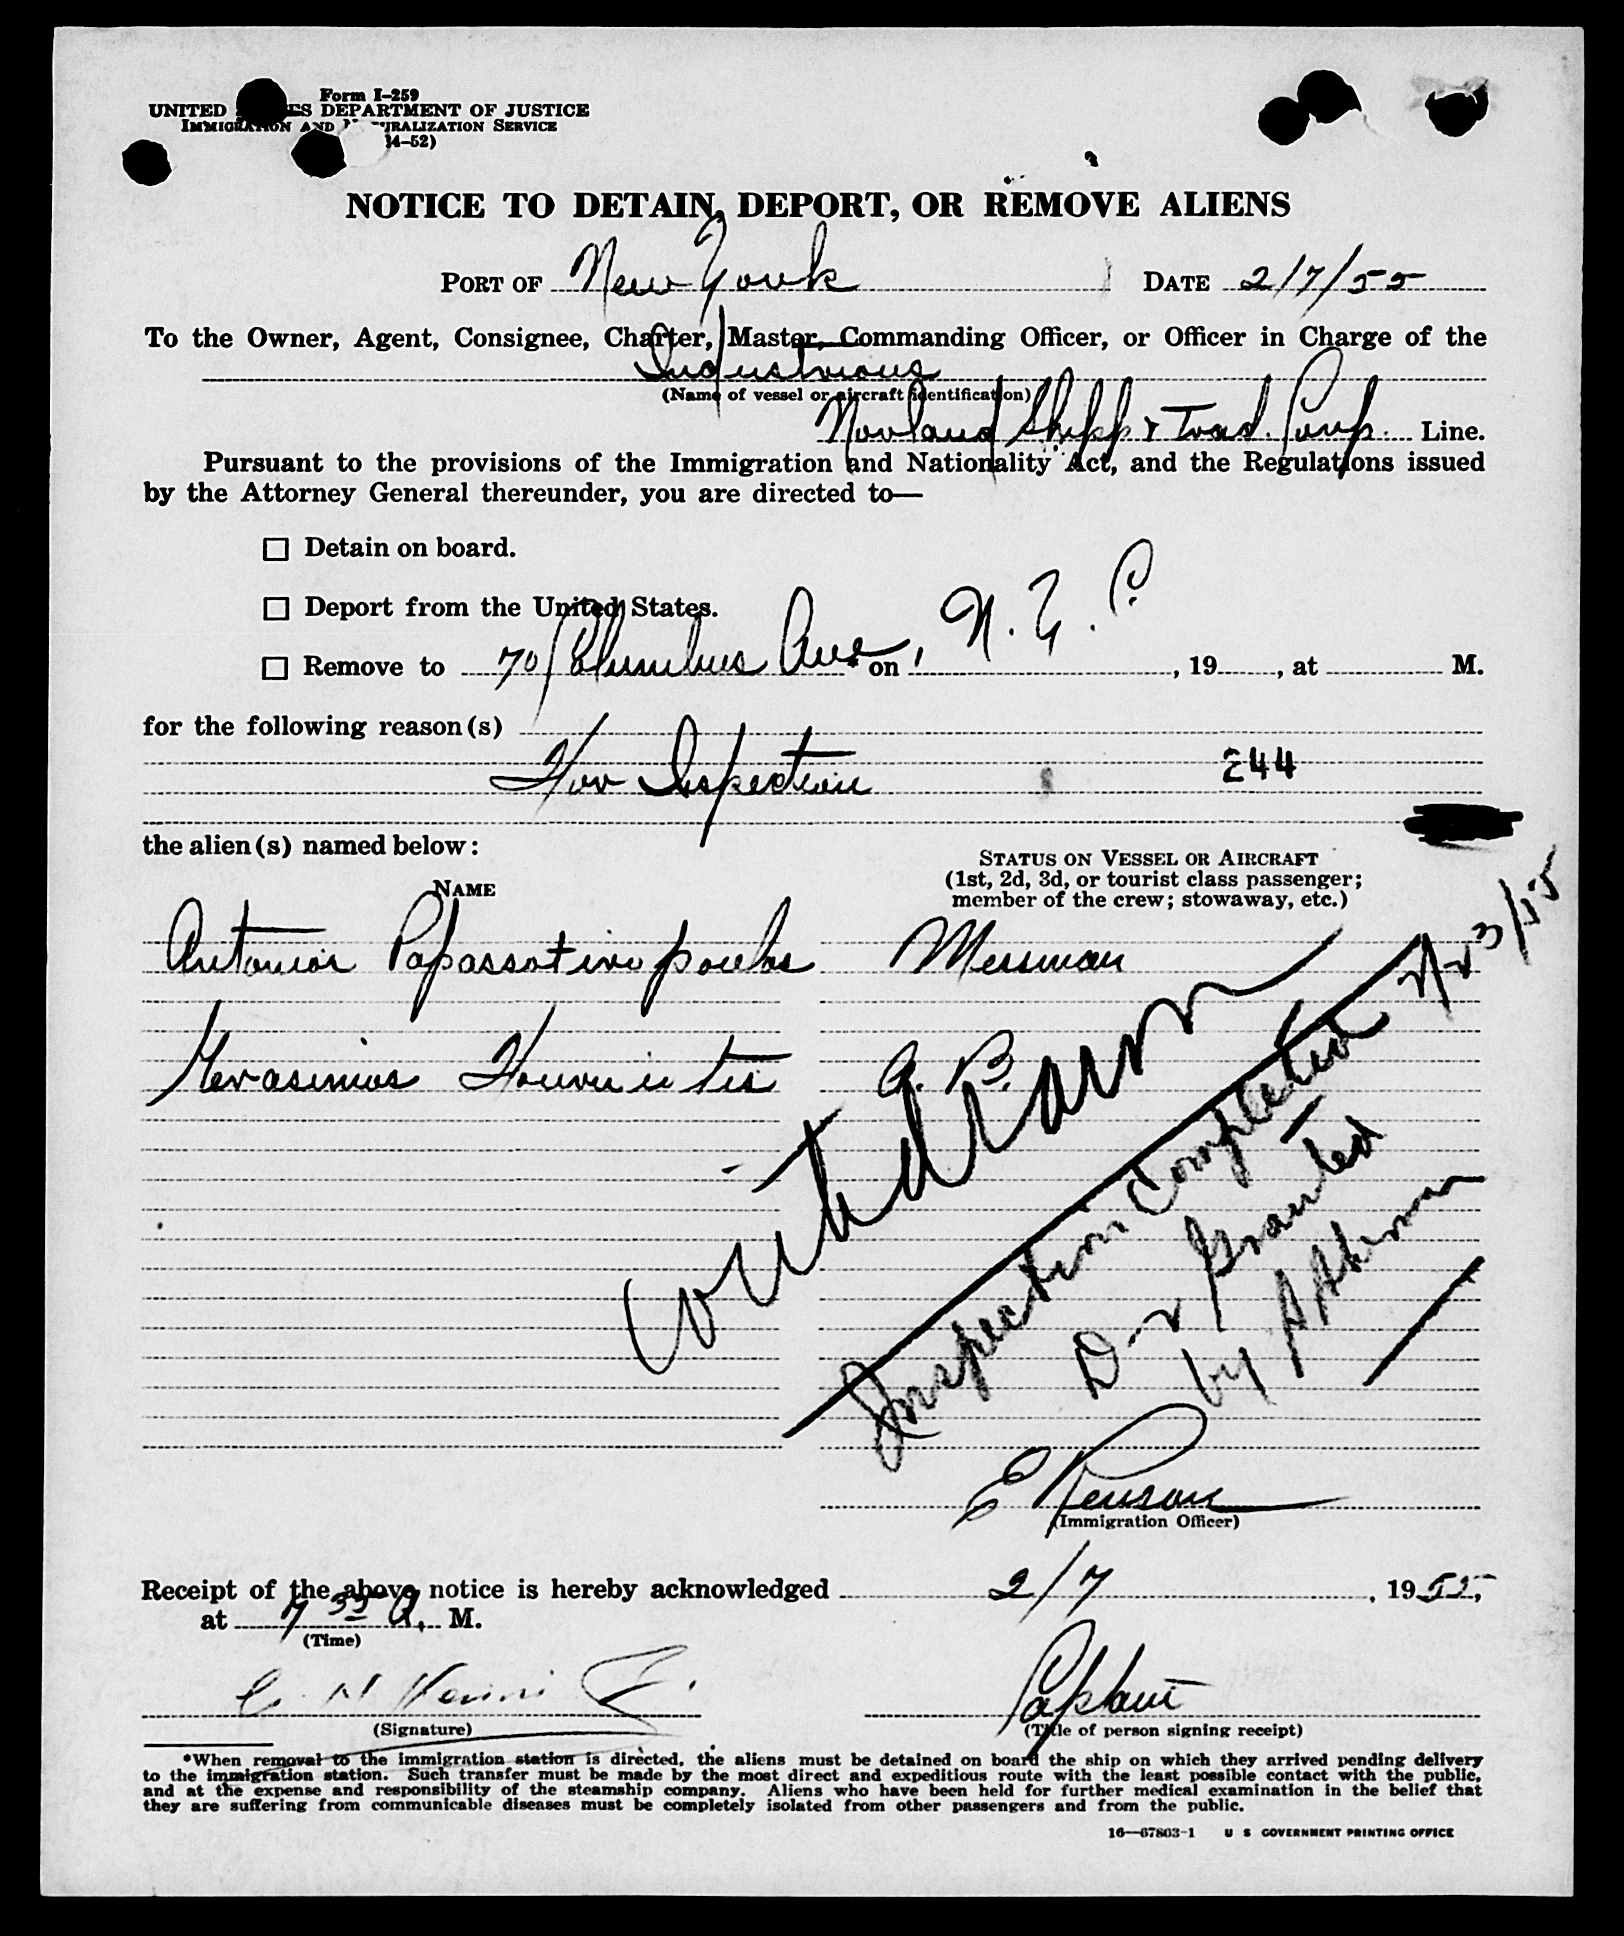 Form I-259
UNITED STATES DEPARTMENT OF JUSTICE
IMMIGRATION AND NATURALIZATION SERVICE
4-52)
NOTICE TO DETAIN, DEPORT, OR REMOVE ALIENS
PORT OF New York DATE 2/7/55
To the Owner, Agent, Consignee, Charter, Master, Commanding Officer, or Officer in Charge of the
Industrious
(Name of vessel or aircraft identification)
Norland Shipp & Trad. Corp. Line.
Pursuant to the provisions of the Immigration and Nationality Act, and the Regulations issued
by the Attorney General thereunder, you are directed to—
☐ Detain on board.
☐ Deport from the United States.
☐ Remove to 70 Columbus Ave, N.Y.C. * on , 19 , at M.
for the following reason(s)
For Inspection 244
the alien(s) named below:
STATUS ON VESSEL OR AIRCRAFT
(1st, 2d, 3d, or tourist class passenger;
member of the crew; stowaway, etc.)
NAME
Antonios Papassotiropoulos Messman
Gerasimos A. B.
Inspection Completed
D-1 Granted
by
E
(Immigration Officer)
Receipt of the above notice is hereby acknowledged 2/7, 1955,
at 7 35 A. M.
(Time)
Captain
(Signature) (Title of person signing receipt)
*When removal to the immigration station is directed, the aliens must be detained on board the ship on which they arrived pending delivery
to the immigration station. Such transfer must be made by the most direct and expeditious route with the least possible contact with the public,
and at the expense and responsibility of the steamship company. Aliens who have been held for further medical examination in the belief that
they are suffering from communicable diseases must be completely isolated from other passengers and from the public.
16—67803-1 U S GOVERNMENT PRINTING OFFICE